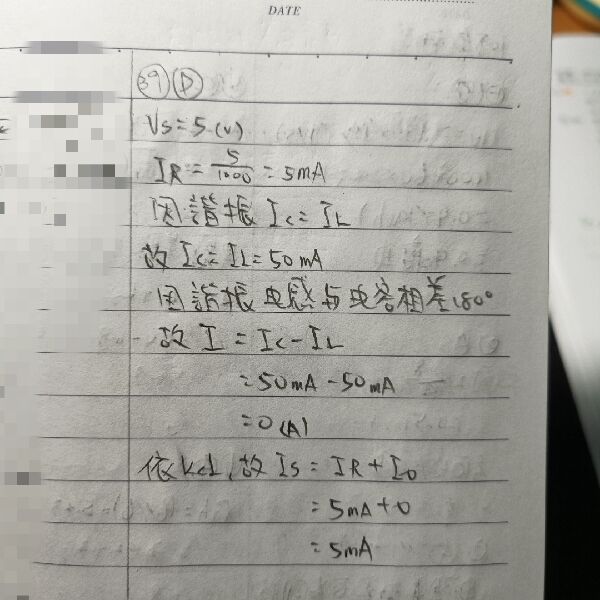 DATE
39 D
Vs = 5 (V)
IR = 5/1000 = 5mA
因諧振 Ic = IL
故 Ic = IL = 50mA
因諧振电感与电容相差180°
故 I = Ic - IL
= 50mA - 50mA
= 0 (A)
依kcl, 故 Is = IR + Io
= 5mA + 0
= 5mA